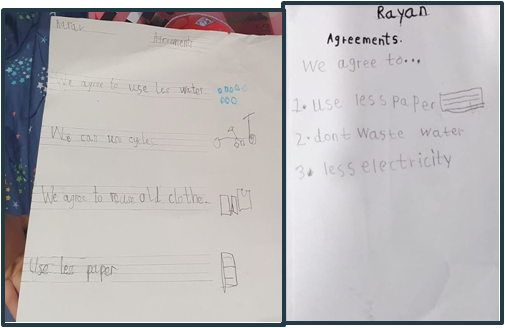 Agreements
We agree to use less water
We can use cycles
We agree to reuse old clothe.
Use less paper
Rayan
Agreements.
We agree to...
1. use less paper
2. dont waste water
3. less electricity